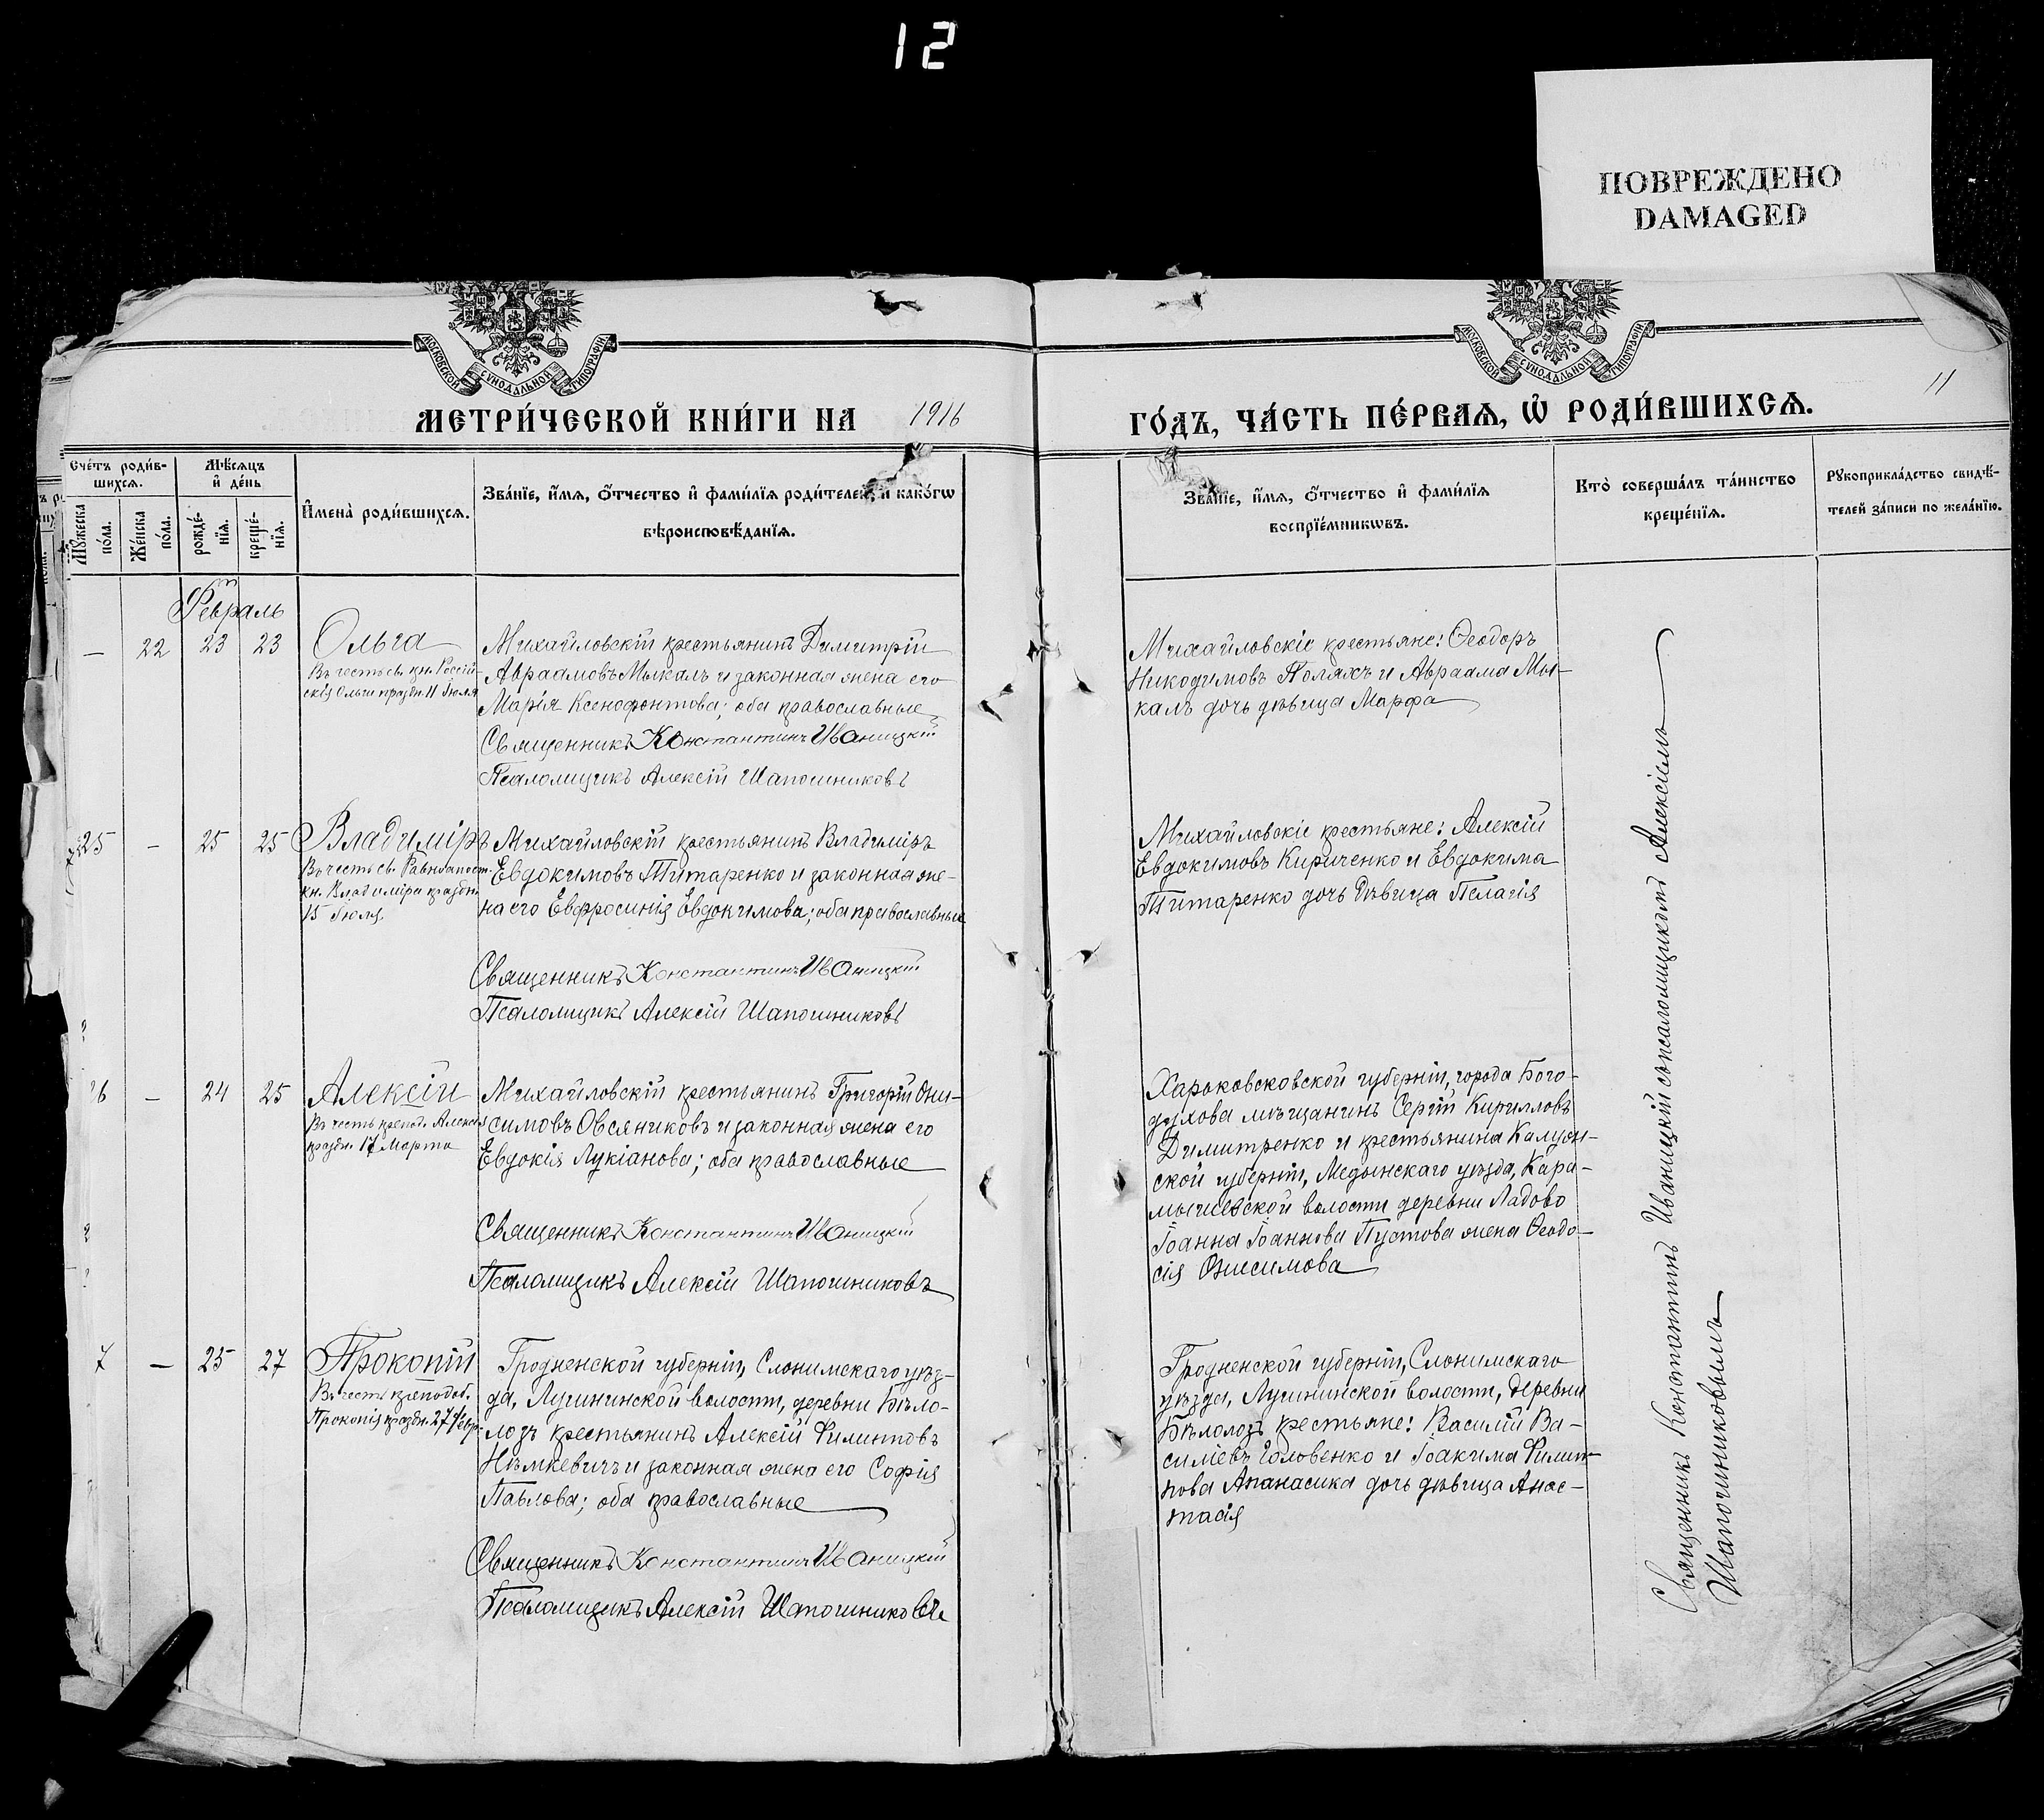 12
ПОВРЕЖДЕНО
DAMAGED
МОСКОВСКОЙ СѴНОДАЛЬНОЙ ТИПОГРАФІИ
МОСКОВСКОЙ СѴНОДАЛЬНОЙ ТИПОГРАФІИ
11
МЕТРИ́ЧЕСКОЙ КНИ́ГИ НА 1916
ГО́ДЪ, ЧА́СТЬ ПЕ́РВАѦ, Ѡ҆ РОДИ́ВШИХСѦ.
Сче́тъ роди́в-
шихсѧ.
Мѣ́сѧцъ
и҆ де́нь
Мꙋ́жеска
по́ла.
Же́нска
по́ла.
рожде́-
нїѧ.
креще́-
нїѧ.
И҆мена̀ роди́вшихсѧ.
Зва́нїе, и҆́мѧ, ѻ҆́тчество и҆ фами́лїѧ роди́телей, и҆ како́гѡ
вѣроисповѣ́данїѧ.
Зва́нїе, и҆́мѧ, ѻ҆́тчество и҆ фами́лїѧ
воспрїе́мникѡвъ.
Кто̀ соверша́лъ та́инство
креще́нїѧ.
Рꙋкоприкла́дство свидѣ́-
телей за́писи по жела́нїю.
Февраль
— 22 23 23 Ольга
Въ честь св. кн. Россій-
скія Ольги праздн. 11 Іюля
Михайловскій крестьянинъ Димитрій
Авраамовъ Мыкалъ и законная жена его
Марія Ксенофонтова; оба православные
Священникъ Константинъ Иваницкій
Псаломщикъ Алексій Шапошниковъ
Михайловскіе крестьяне: Ѳеодоръ
Никодимовъ Поляхъ и Авраама Мы-
калъ дочь дѣвица Марфа
25 — 25 25 Владиміръ
Въ честь св. Равноапост.
кн. Владиміра праздн.
15 Іюля
Михайловскій крестьянинъ Владиміръ
Евдокимовъ Титаренко и законная же-
на его Евфросинія Евдокимова; оба православные
Священникъ Константинъ Иваницкій
Псаломщикъ Алексій Шапошниковъ
Михайловскіе крестьяне: Алексій
Евдокимовъ Кириченко и Евдокима
Титаренко дочь дѣвица Пелагія
26 — 24 25 Алексій
Въ честь препод. Алексія
праздн. 17 Марта
Михайловскій крестьянинъ Григорій Они-
симовъ Овсяниковъ и законная жена его
Евдокія Лукіанова; оба православные
Священникъ Константинъ Иваницкій
Псаломщикъ Алексій Шапошниковъ
Харьковсковской губерніи, города Бого-
духова мѣщанинъ Сергій Кирилловъ
Димитренко и крестьянина Калуж-
ской губерніи, Медынскаго уѣзда, Кара-
мышевской волости деревни Ладово
Іоанна Іоаннова Пустова жена Ѳеодо-
сія Онисимова
7 — 25 27 Прокопій
Въ честь преподоб.
Прокопія праздн. 27 Февр.
Гродненской губерніи, Слонимскаго уѣз-
да, Лучининской волости, деревни Бѣло-
лозъ крестьянинъ Алексій Филипповъ
Нѣмкевичъ и законная жена его Софія
Павлова; оба православные
Священникъ Константинъ Иваницкій
Псаломщикъ Алексій Шапошниковъ
Гродненской губерніи, Слонимскаго
уѣзда, Лучининской волости, деревни
Бѣлолозъ крестьяне: Василій Ва-
силіевъ Головенко и Іоакима Филип-
пова Апанасика дочь дѣвица Анас-
тасія
Священникъ Константинъ Иваницкій съ псаломщикомъ Алексіемъ
Шапошниковымъ